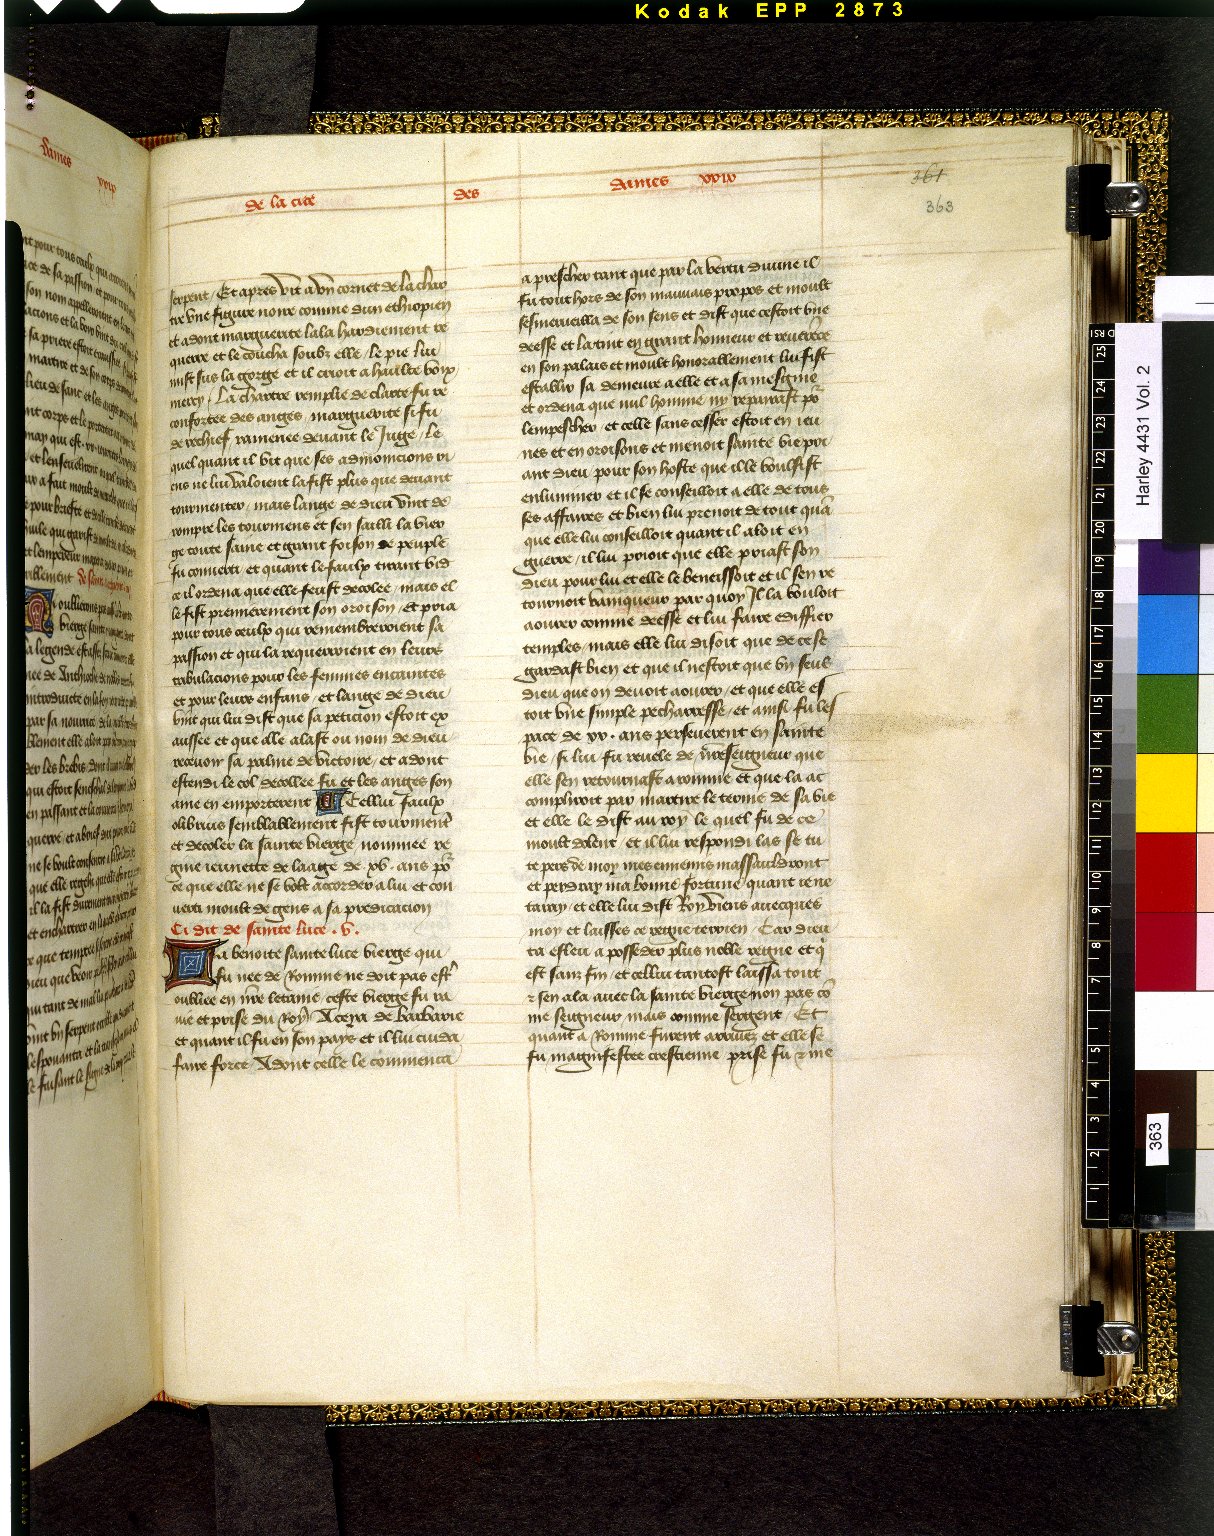 Kodak EPP 2873
dames
xxix
de la cite
des
dames xxix
361
363
serpent / Et apres vit a un cornet de la char
tre une figure noire comme dun ethiopien
et adont marguerite lala hardiement re
querre et le coucha soubz elle / le pie lui
mist sus la gorge et il crioit a haulte voix
mercy / La chartre remplie de clarte fu re
confortee des anges / marguerite si fu
de rechief ramenee devant le Juge / le
quel quant il vit que ses admonicions ri
ens ne lui valoient la fist plus que devant
tourmenter / mais lange de dieu vint de
rompre les tourmens et sen sailli la vier
ge toute saine et grant foison de peuple
fu converti et quant le faulx tirant vid
ce il ordena que elle feust decolee / mais el
le fist premierement son oroison / et pria
pour tous ceulx qui remembreroient sa
passion et qui la requerroient en leurs
tribulacions pour les femmes encaintes
et pour leurs enfans / et lange de dieu
vint qui lui dist que sa peticion estoit ex
aussee et que elle alast ou nom de dieu
recevoir sa palme de victoire / et adont
estendi le col decollee fu et les anges son
ame en emporterent Cellui faulx
olibrius semblablement fist tourment̄
et decoler la sainte vierge nommee re
gine ieunette de laage de xv. ans po͛
ce que elle ne se volt accorder a lui et con
verti moult de gens a sa predicacion
Ci dit de sainte luce . v.
La benoite sainte luce vierge qui
fu nee de Romme ne doit pas est͛
oubliee en nr̄e letanie / ceste vierge fu ra
vie et prise du Roy Aceya de barbarie
et quant il fu en son pays et il lui cuida
faire force Adont celle le commenca
a preschier tant que par la vertu divine il
fu tout hors de son mauvais propos et moult
sesmerveilla de son sens et dist que cestoit une
deesse et la tint en grant honneur et reverēce
en son palais et moult honorablement lui fist
establir sa demeure a elle et a sa mesgniee
et ordena que nul homme ny repairast po͛
lempeschier / et celle sans cesser estoit en ieu
nes et en oroisons et menoit sainte vie pri
ant dieu pour son hoste que il le voulsist
enluminer et il se conseilloit a elle de tous
ses affaires et bien lui prenoit de tout quā
que elle lui conseilloit quant il aloit en
guerre / il lui prioit que elle priast son
dieu pour lui et elle le beneissoit et il sen re
tournoit vainqueur par quoy Il la vouloit
aourer comme deesse et lui faire ediffier
temples / mais elle lui disoit que de ce se
gardast bien et que il nestoit que un seul
dieu que on devoit aourer / et que elle es
toit une simple pecharresse / et ainsi fu les
pace de xx. ans perseverent en sainte
vie / si lui fu revele de nr̄eseigneur que
elle sen retournast a romme et que la ac
compliroit par martire le terme de sa vie
et elle le dist au roy le quel fu de ce
moult dolent / et il lui respondi las se tu
te pers de moy mes ennemis massauldront
et perdray ma bonne fortune quant ie ne
taray / et elle lui dist Roy viens avecques
moy et laisses ce regne terrien / Car dieu
ta esleu a posseder plus noble regne et q̄
est sanz fin / et cellui tantost laissa tout
⁊ sen ala avec la sainte vierge non pas cō
me seigneur mais comme sergent / Et
quant a Romme furent arrivez et elle se
fu magnifestee crestienne prise fu ⁊ me
Harley 4431 Vol. 2
363